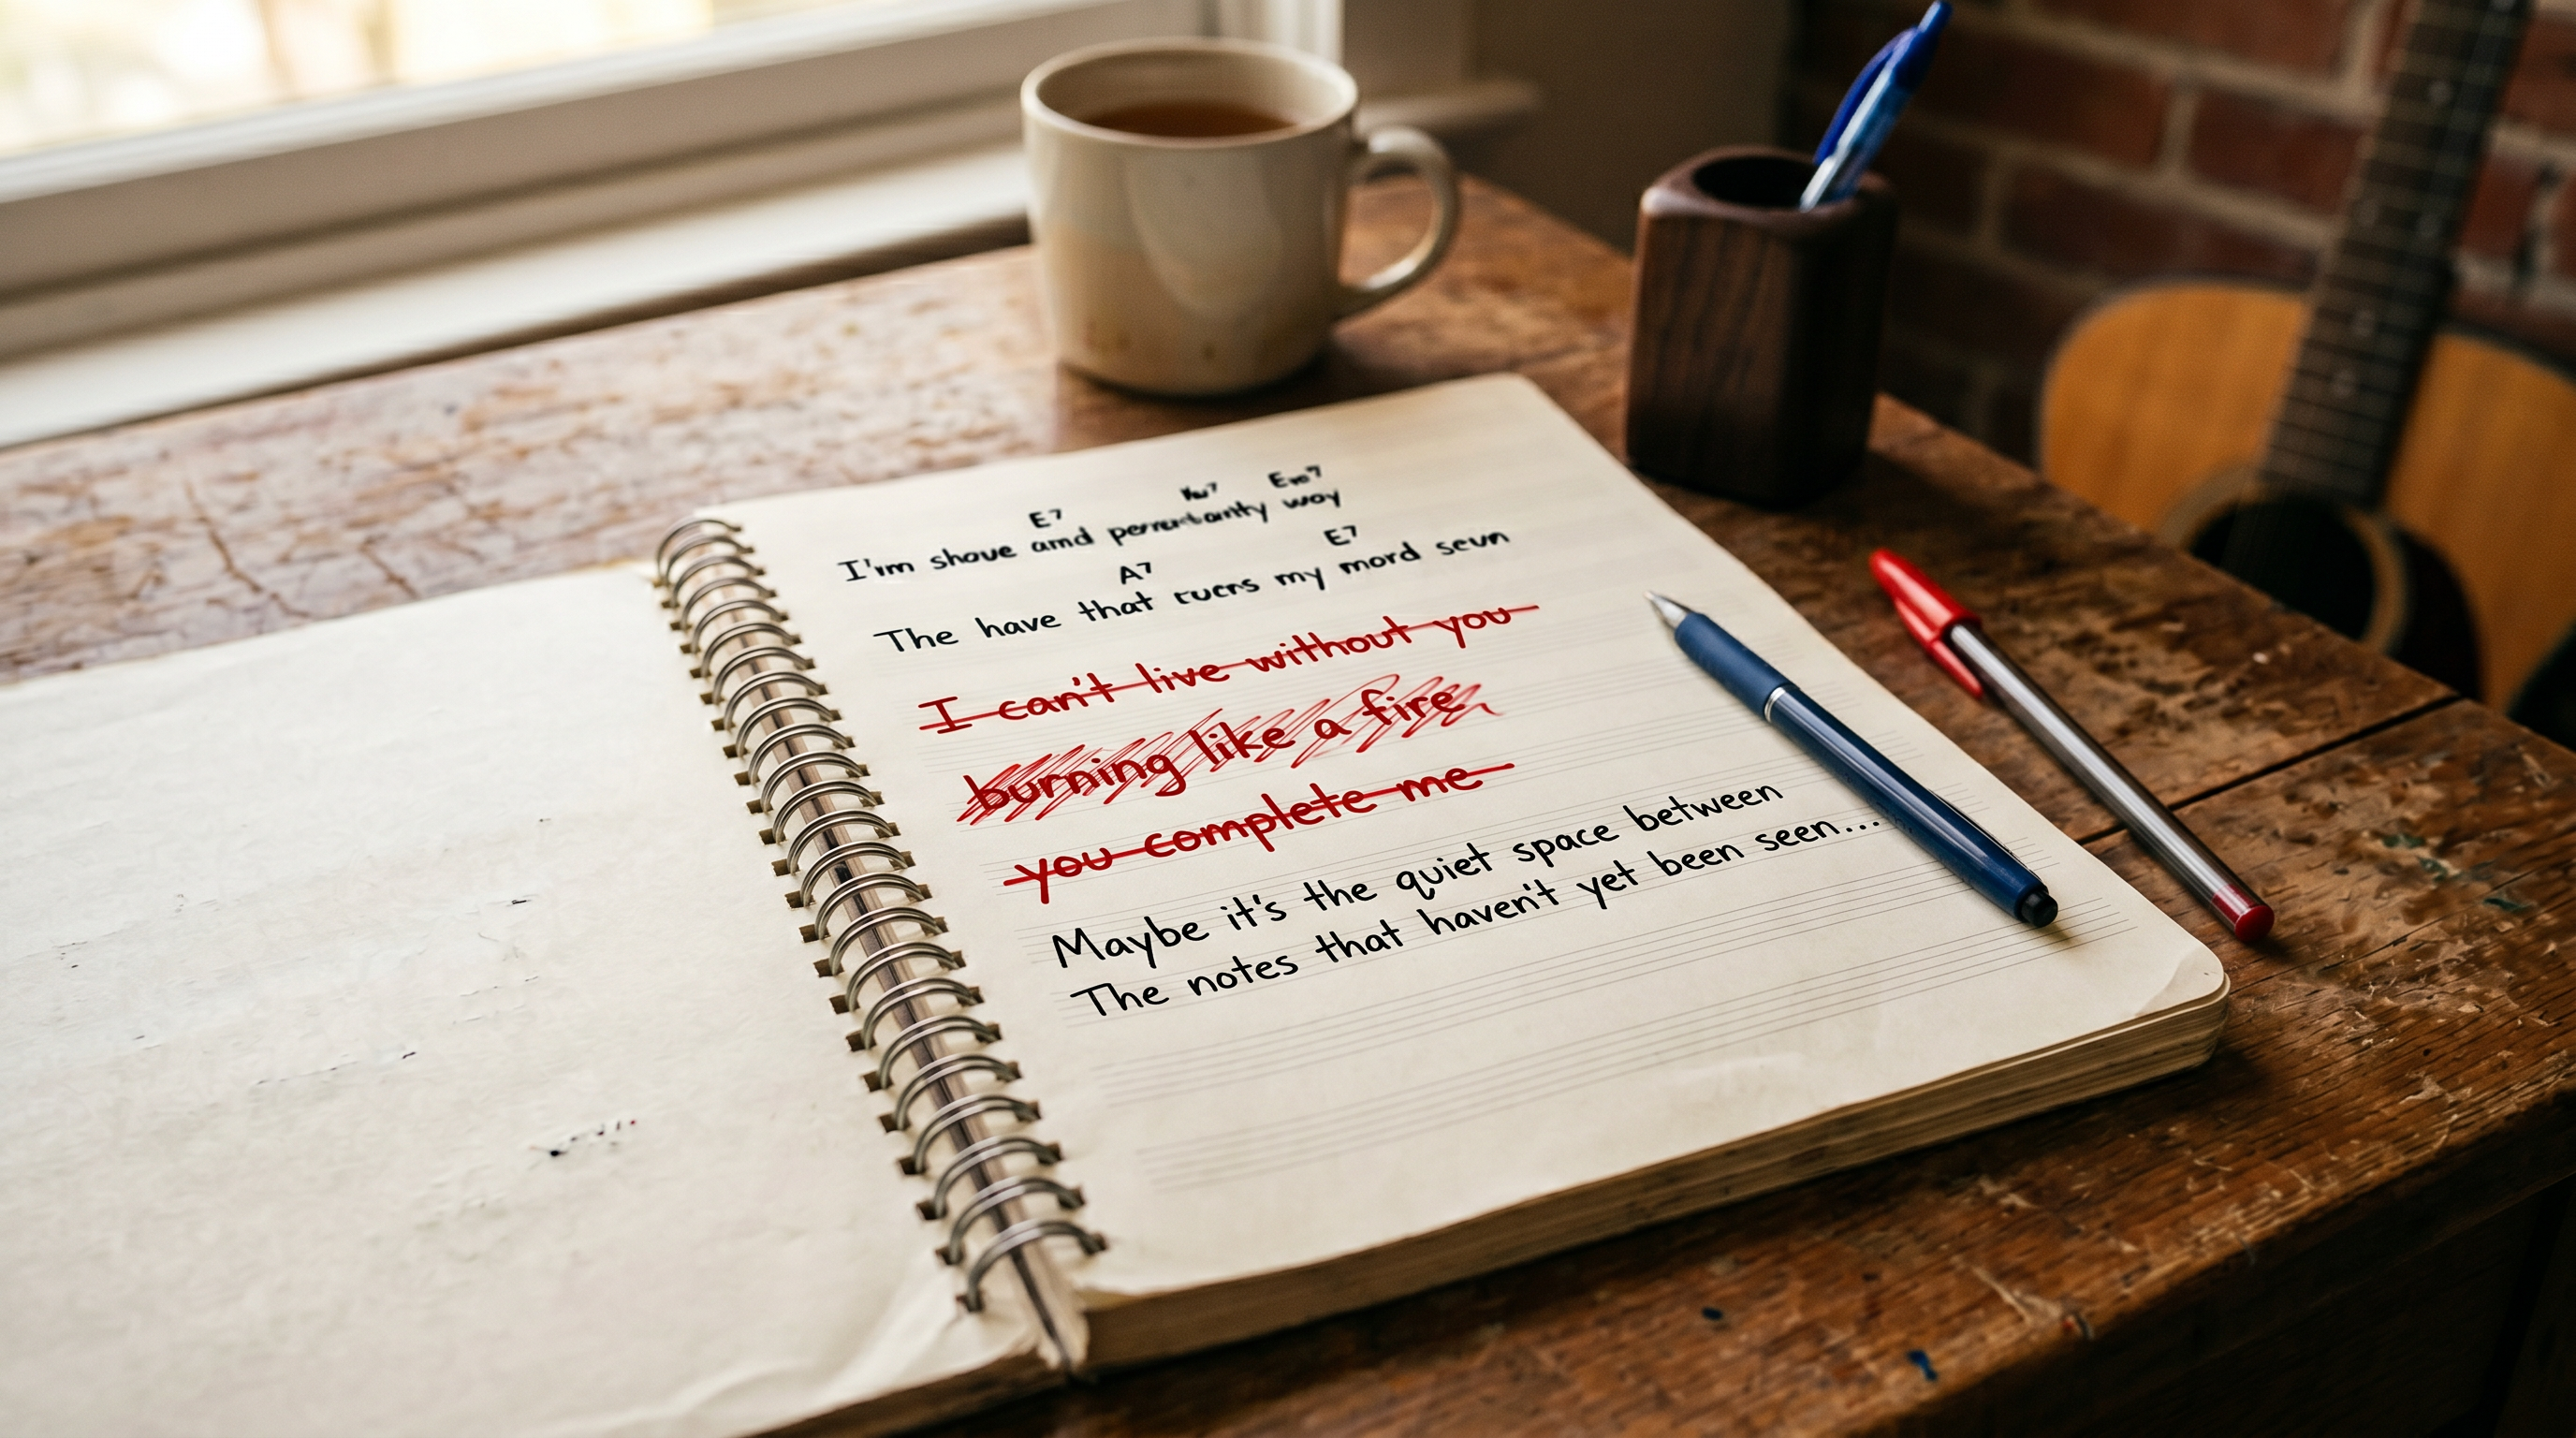 E7 Em7
I'm shove amd way
A7 E7
The have that rucrs my mord seun
I can't live without you
burning like a fire
you complete me
Maybe it's the quiet space between
The notes that haven't yet been seen...